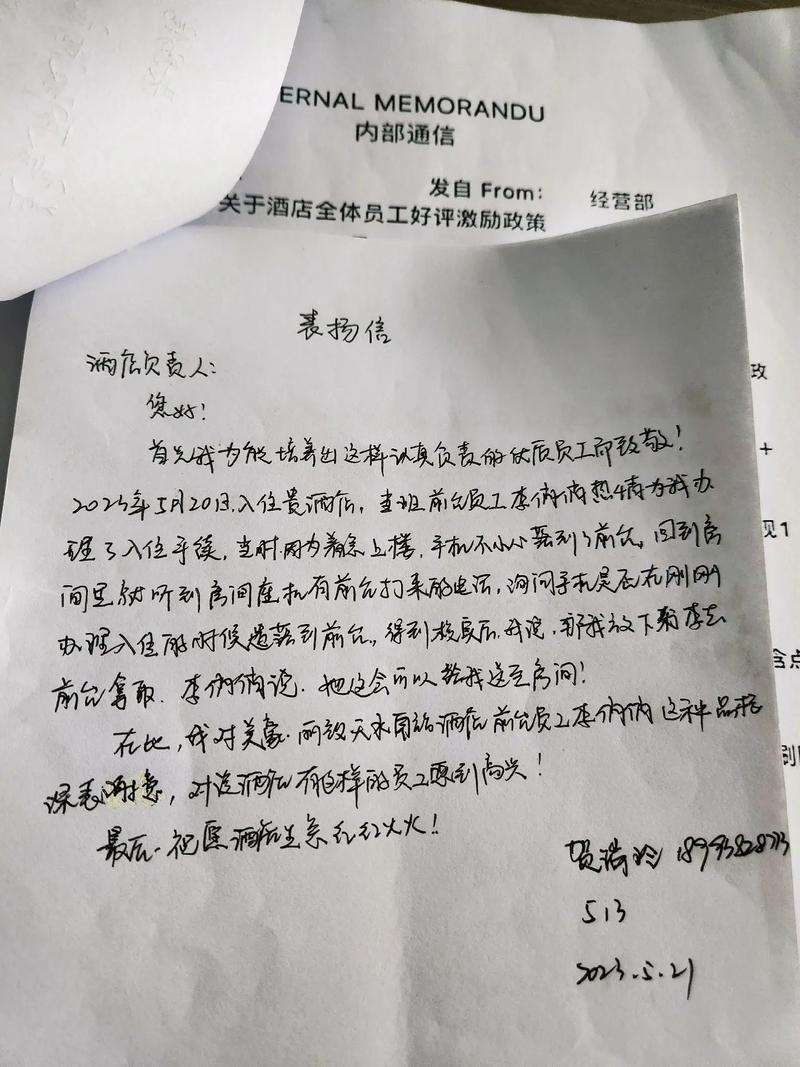 ERNAL MEMORANDU
内部通信
发自 From: 经营部
关于酒店全体员工好评激励政策
政
+
现1
含点
刷
表扬信
酒店负责人:
您好!
首先我为能培养出这样认真负责的优质员工而致敬!
2023年5月20日,入住贵酒店,当班前台员工李俩俩热情为我办
理了入住手续,当时因为着急上楼,手机不小心落到了前台,回到房
间里就听到房间座机有前台打来的电话,询问手机是否在刚刚
办理入住的时候遗落到前台,得到核实后,我说,那我放下东西去
前台拿取.李俩俩说.她这会可以给我送至房间!
在此,我对美豪·丽致天水酒店前台员工李俩俩这种品格
深表谢意,对贵酒店有这样的员工感到高兴!
最后.祝愿酒店生意红红火火!
贺瑞玲
513
2023.5.21